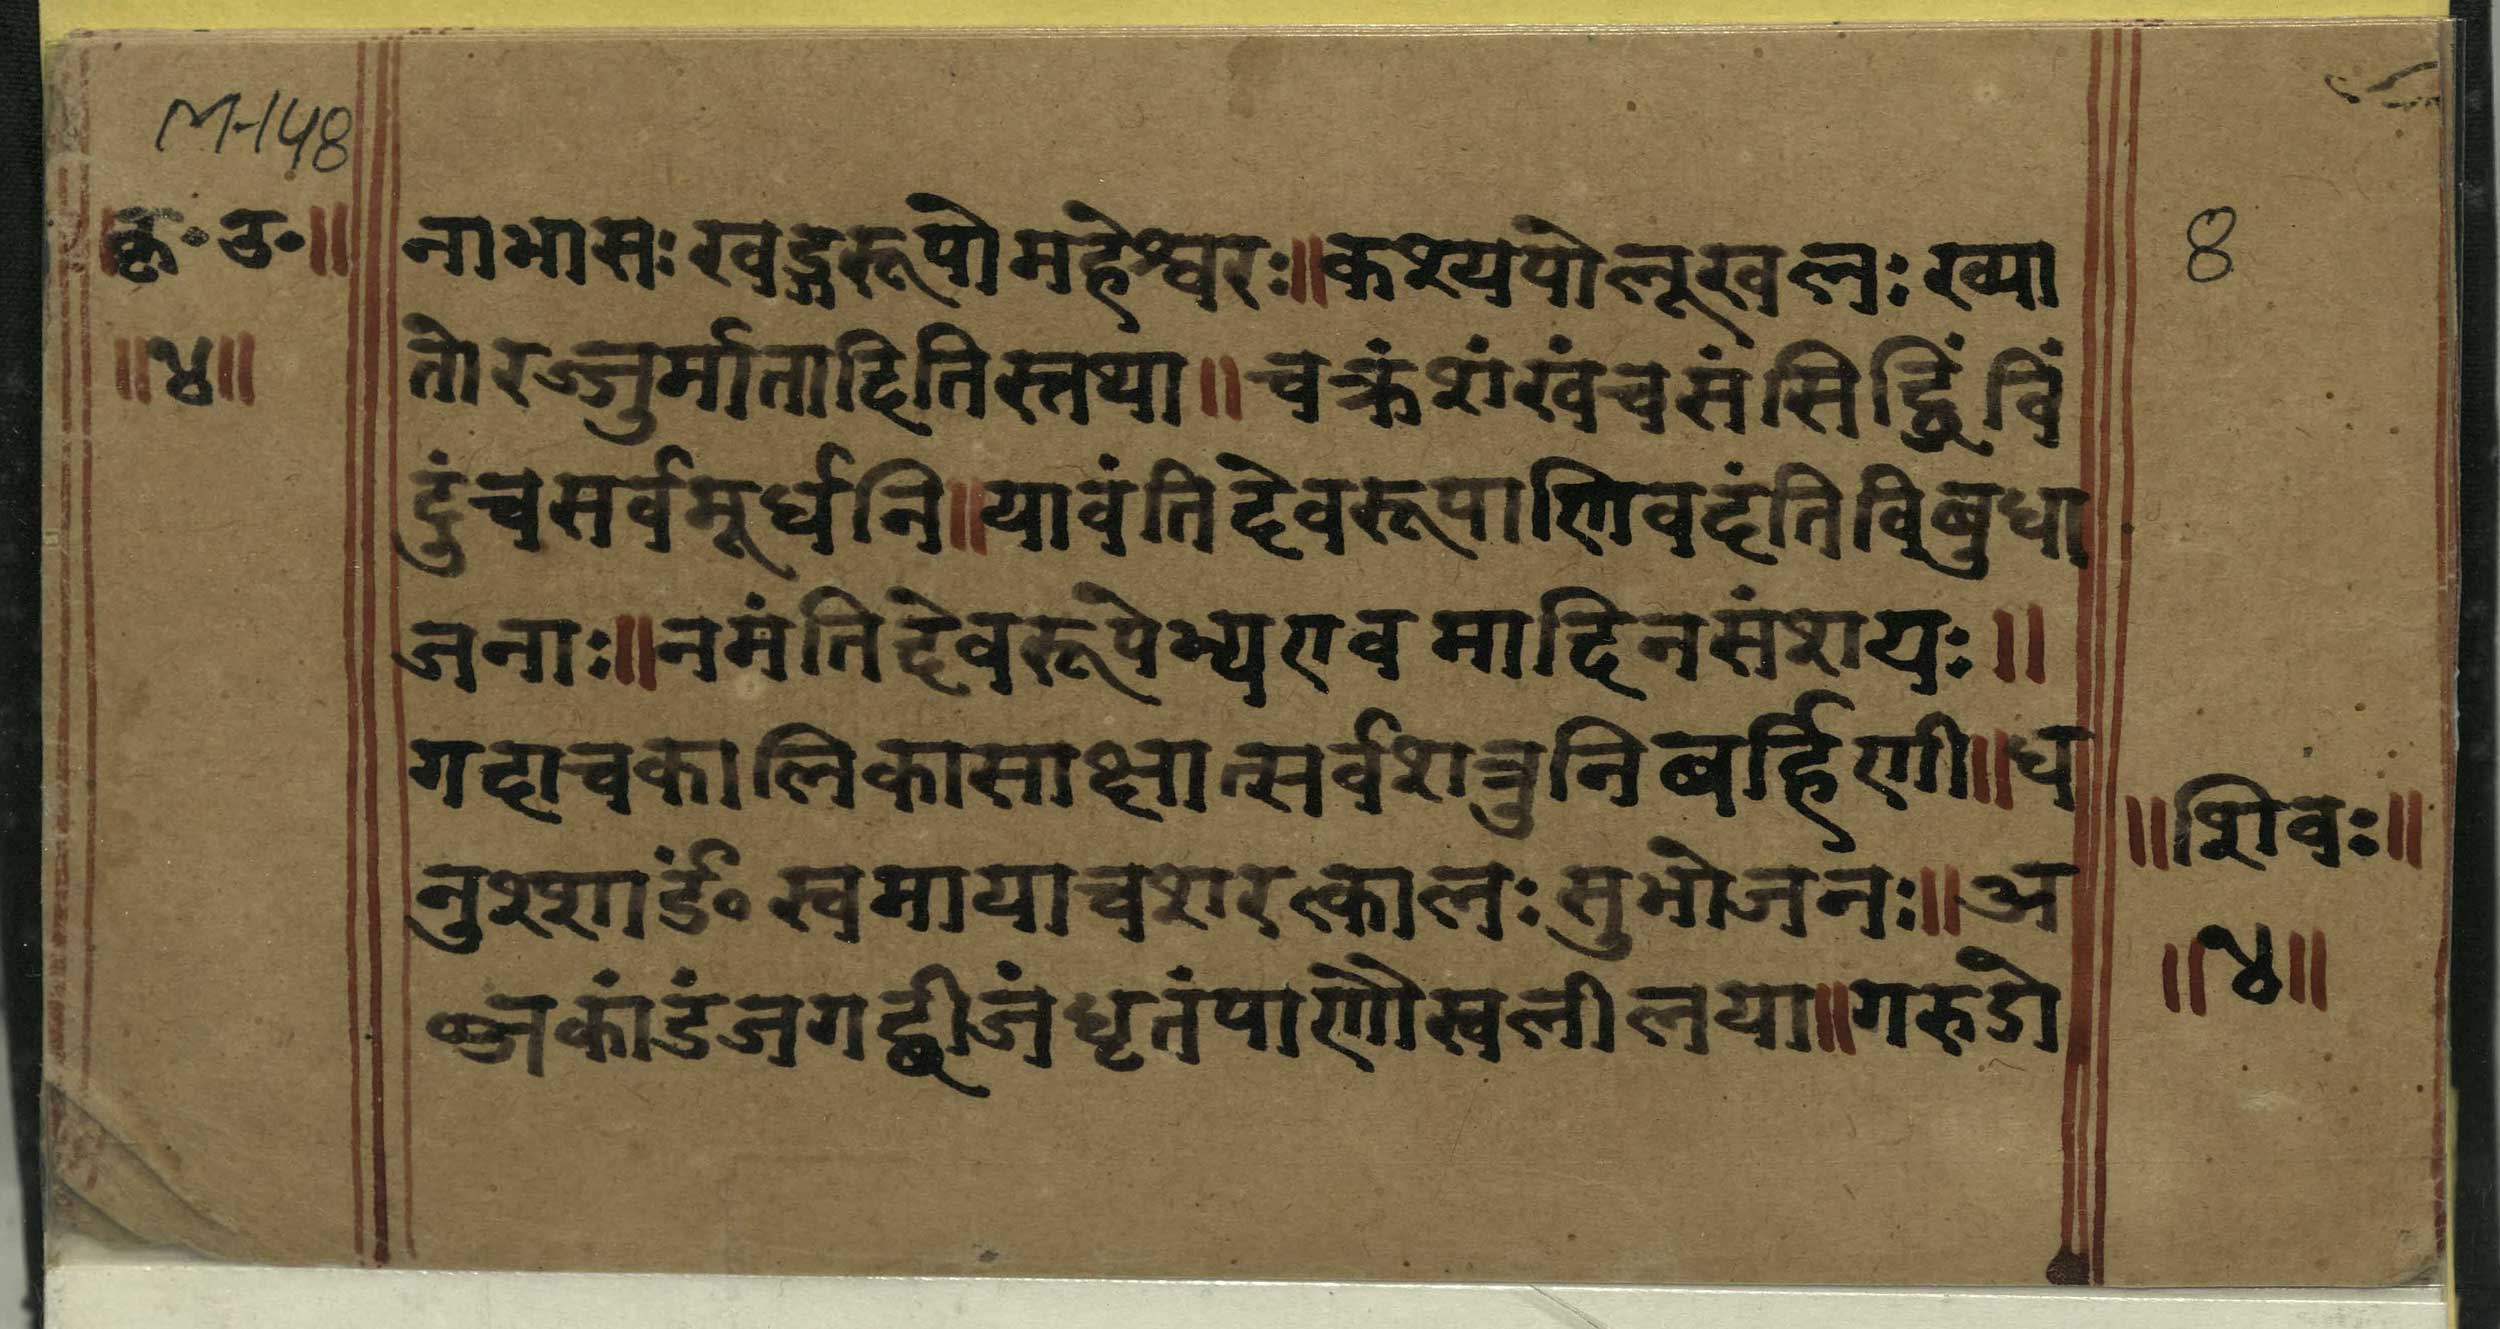 M-148
॥कृ॰ उ॰॥
॥४॥
नाभासः खड्गरूपो महेश्वरः॥कश्यपोलूखलः ख्या
तो रज्जुर्माता दितिस्तथा॥ चक्रं शंखं च संसिद्धिं विं
दुं च सर्वमूर्धनि॥यावंति देवरूपाणि वदंति विबुधा
जनाः॥नमंति देवरूपेभ्य एव मादि न संशयः॥
गदा च कालिका साक्षात्सर्वशत्रुनिबर्हिणी॥ध
नुश्शार्ङं॰ स्वमाया च शरत्कालः सुभोजनः॥अ
ब्जकांडं जगद्बीजं धृतं पाणौ स्वलीलया॥गरुडो
8
॥शिवः॥
॥४॥